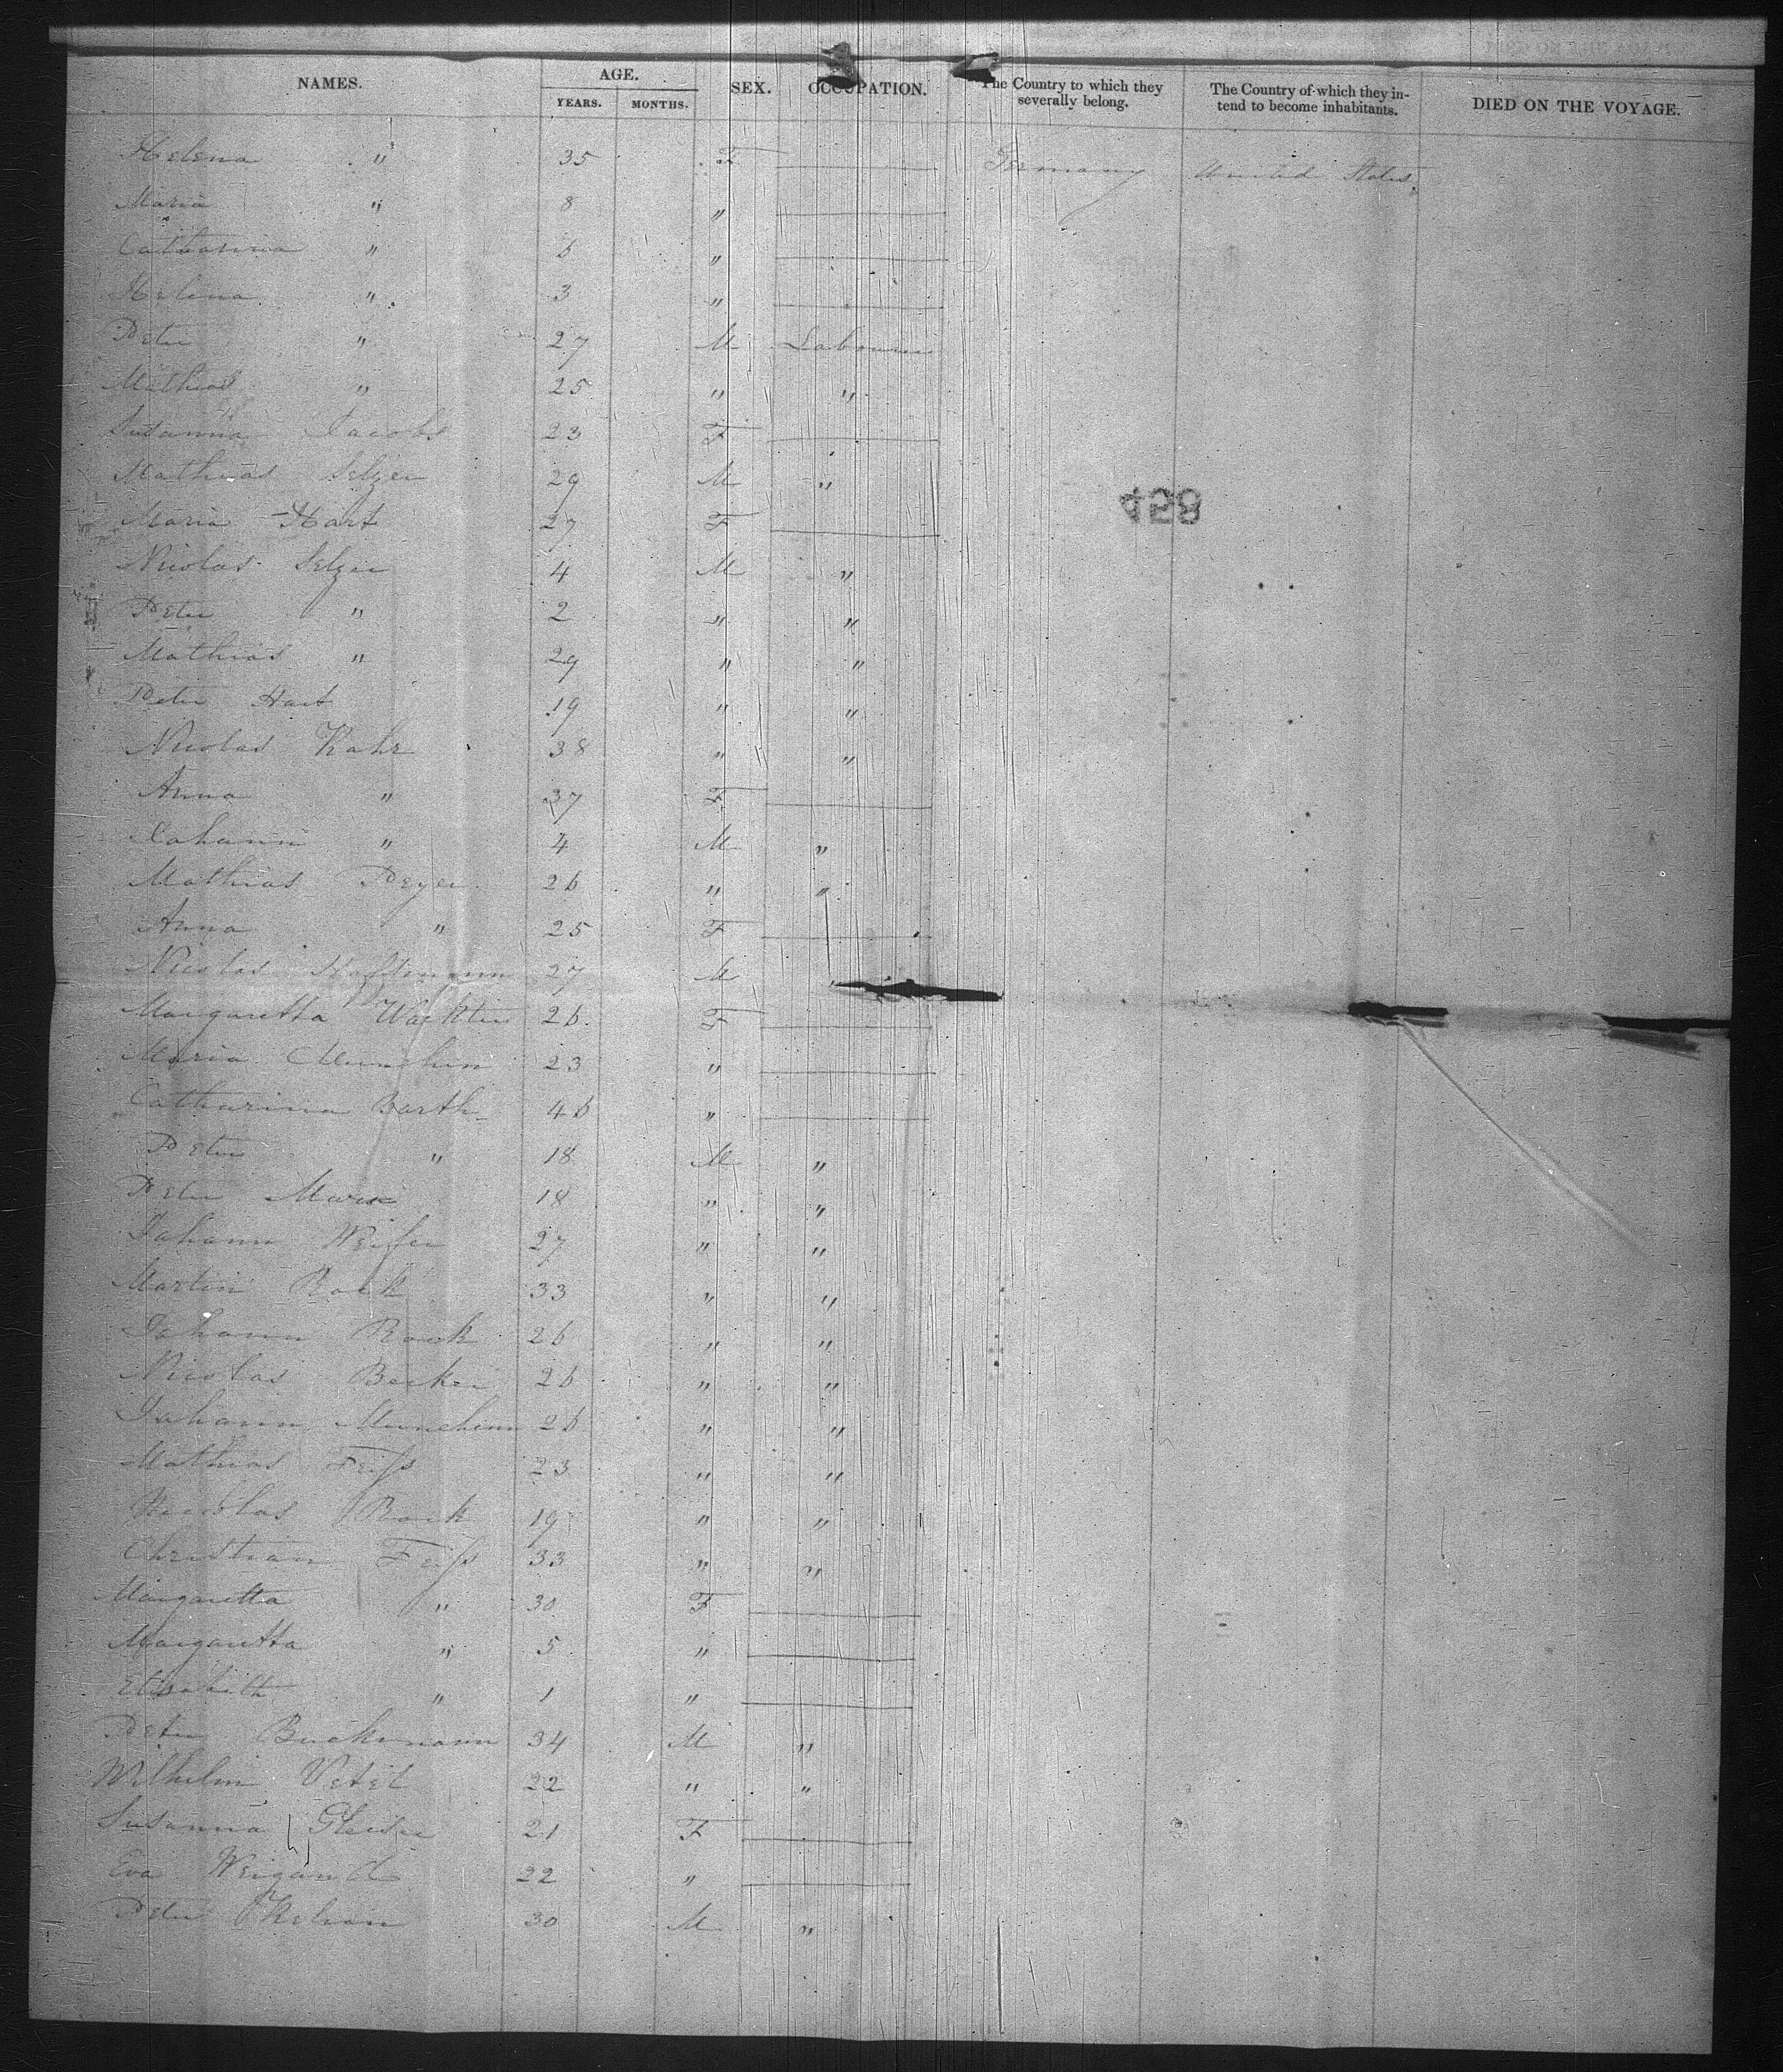 NAMES. AGE. SEX. OCCUPATION. The Country to which they severally belong. The Country of which they in-tend to become inhabitants. DIED ON THE VOYAGE.
YEARS. MONTHS.
Helena " 35 F Germany United States
Maria " 8 "
Catharina " 6 "
Helena " 3 "
Peter " 27 M Labourer
Mathias " 25 " "
Susanna Jacobs 23 F
Mathias Selzer 29 M "
Maria Hart 27 F
458
Nicolas Selzer 4 M "
Peter " 2 " "
Mathias " 29 " "
Peter Hart 19 " "
Nicolas Kohr 38 " "
Anna " 37 F
Johann " 4 M "
Mathias Peyer 26 " "
Anna " 25 F
Nicolas Hoffmann 27 M
Margaretta 26 F
Maria Munchen 23 "
Catharina Barth 46 "
Peter " 18 M "
Peter Marx 18 " "
Johann 27 " "
Martin Bock 33 " "
Johann Bock 26 " "
Nicolas Becker 26 " "
Johann Munchen 26 " "
Mathias Feiss 23 " "
Nicolas Bock 19 " "
Christian Feiss 33 " "
Margaretta " 30 F
Margaretta " 5 "
Elisabeth " 1 "
Peter Buchmann 34 M "
Wilhelm Vetel 22 " "
Susanna 21 F
Eva Weigand 22 "
Peter 30 M "